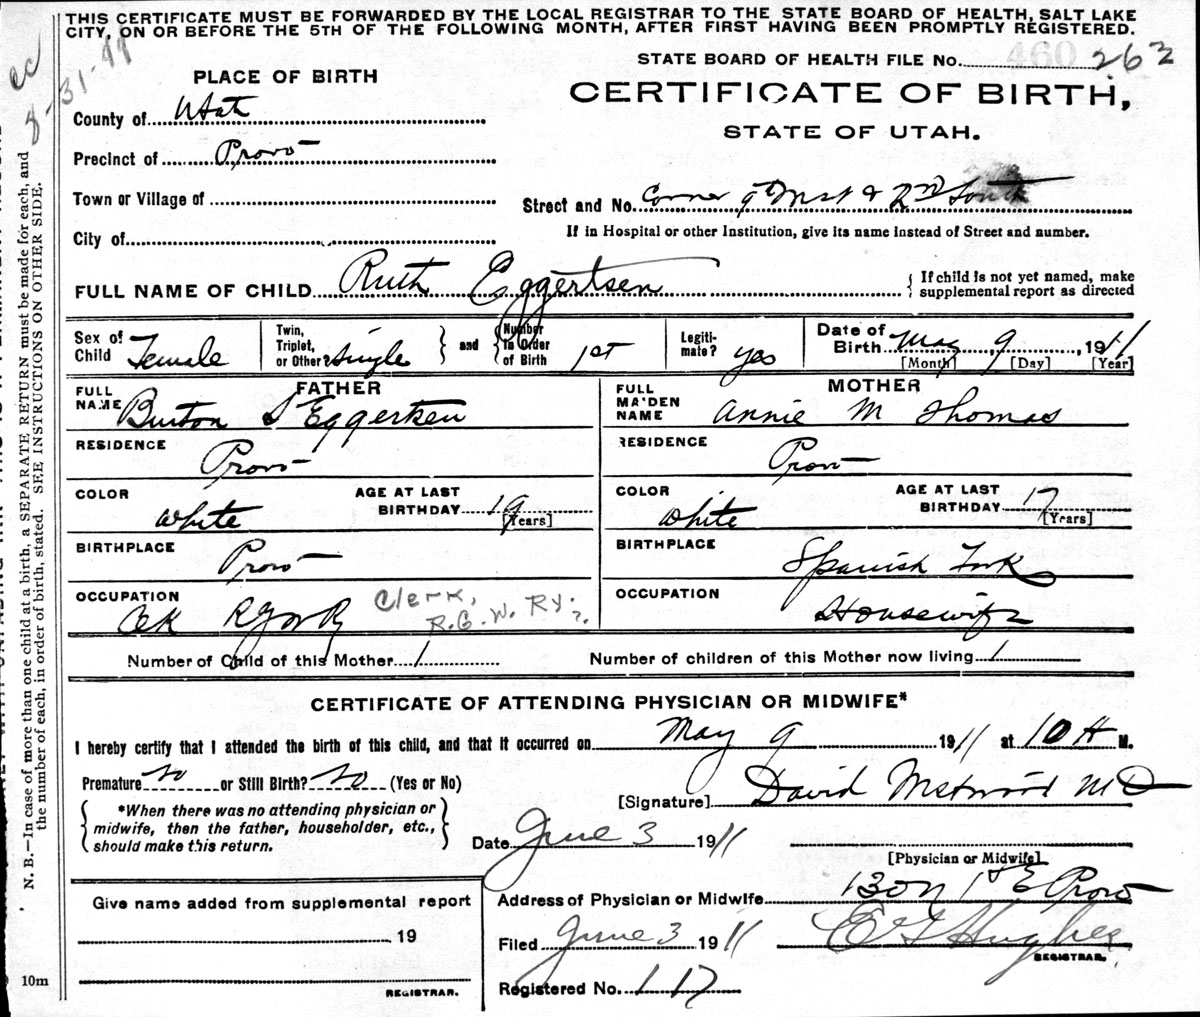 THIS CERTIFICATE MUST BE FORWARDED BY THE LOCAL REGISTRAR TO THE STATE BOARD OF HEALTH, SALT LAKE
CITY, ON OR BEFORE THE 5TH OF THE FOLLOWING MONTH, AFTER FIRST HAVING BEEN PROMPTLY REGISTERED.
ec
8-31-44
460
STATE BOARD OF HEALTH FILE No. 262
PLACE OF BIRTH
CERTIFICATE OF BIRTH,
STATE OF UTAH.
County of Utah
Precinct of Provo
Town or Village of
Street and No. Corner & 2nd South
If in Hospital or other Institution, give its name instead of Street and number.
City of
FULL NAME OF CHILD Ruth Eggertsen
{ If child is not yet named, make
supplemental report as directed
Sex of Child Female
Twin, Triplet, or Other single } and { Number in Order of Birth 1st
Legiti-mate? yes
Date of Birth May 9, 1911
[Month] [Day] [Year]
FATHER
FULL NAME Burton S Eggertsen
MOTHER
FULL MAIDEN NAME Annie M Thomas
RESIDENCE Provo
RESIDENCE Provo
COLOR White
AGE AT LAST BIRTHDAY 19 [Years]
COLOR White
AGE AT LAST BIRTHDAY 17 [Years]
BIRTHPLACE Provo
BIRTHPLACE Spanish Fork
OCCUPATION Clk RGWR
Clerk, R.G.W. Ry. ?
OCCUPATION Housewife
Number of Child of this Mother 1
Number of children of this Mother now living 1
CERTIFICATE OF ATTENDING PHYSICIAN OR MIDWIFE*
I hereby certify that I attended the birth of this child, and that it occurred on May 9 1911 at 10 A M.
Premature no or Still Birth? no (Yes or No)
[Signature] David Westwood MD
{ *When there was no attending physician or
midwife, then the father, householder, etc.,
should make this return. }
Date June 3 1911
[Physician or Midwife]
Address of Physician or Midwife 130 N 1st E Provo
Give name added from supplemental report
19
REGISTRAR.
Filed June 3 1911
E G Hughes
REGISTRAR.
Registered No. 117
10m
N. B.—In case of more than one child at a birth, a SEPARATE RETURN must be made for each, and
the number of each, in order of birth, stated. SEE INSTRUCTIONS ON OTHER SIDE.